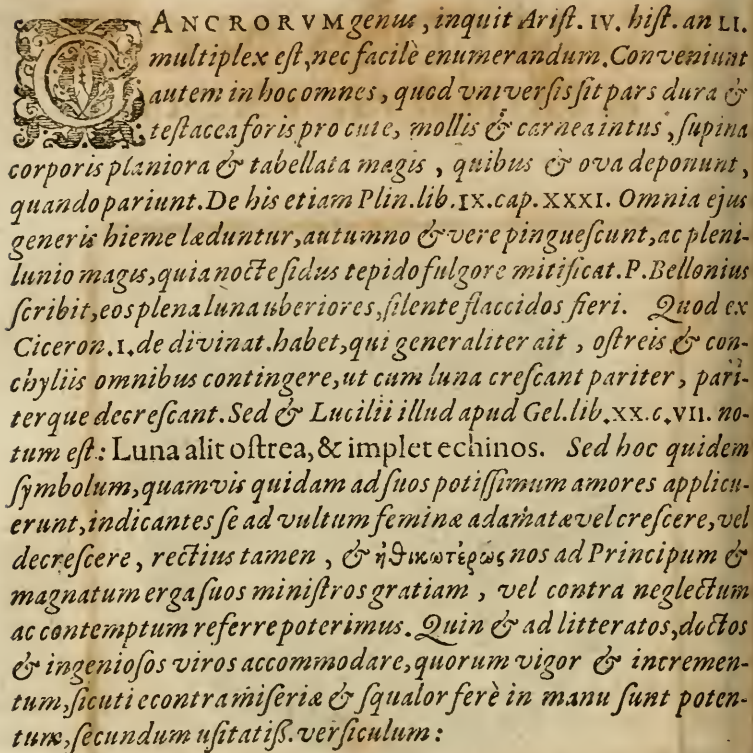 CANCRORVM genus, inquit Arist. IV. hist. an LI.
multiplex est, nec facilè enumerandum. Conveniunt
autem in hoc omnes, quod vniversis sit pars dura &
testacea foris pro cute, mollis & carnea intus, supina
corporis planiora & tabellata magis, quibus & ova deponunt,
quando pariunt. De his etiam Plin. lib. IX. cap. XXXI. Omnia ejus
generis hieme læduntur, autumno & vere pinguescunt, ac pleni-
lunio magis, quia nocte sidus tepido fulgore mitificat. P. Bellonius
scribit, eos plena luna uberiores, silente flaccidos fieri. Quod ex
Ciceron. I. de divinat. habet, qui generaliter ait, ostreis & con-
chyliis omnibus contingere, ut cum luna crescant pariter, pari-
terque decrescant. Sed & Lucilii illud apud Gel. lib. XX. c. VII. no-
tum est: Luna alit ostrea, & implet echinos. Sed hoc quidem
symbolum, quamvis quidam ad suos potissimum amores applicu-
erunt, indicantes se ad vultum feminæ adamatæ vel crescere, vel
decrescere, rectius tamen, & ἠθικωτέρως nos ad Principum &
magnatum erga suos ministros gratiam, vel contra neglectum
ac contemptum referre poterimus. Quin & ad litteratos, doctos
& ingeniosos viros accommodare, quorum vigor & incremen-
tum, sicuti econtra miseriæ & squalor ferè in manu sunt poten-
tum, secundum usitatiß. versiculum: